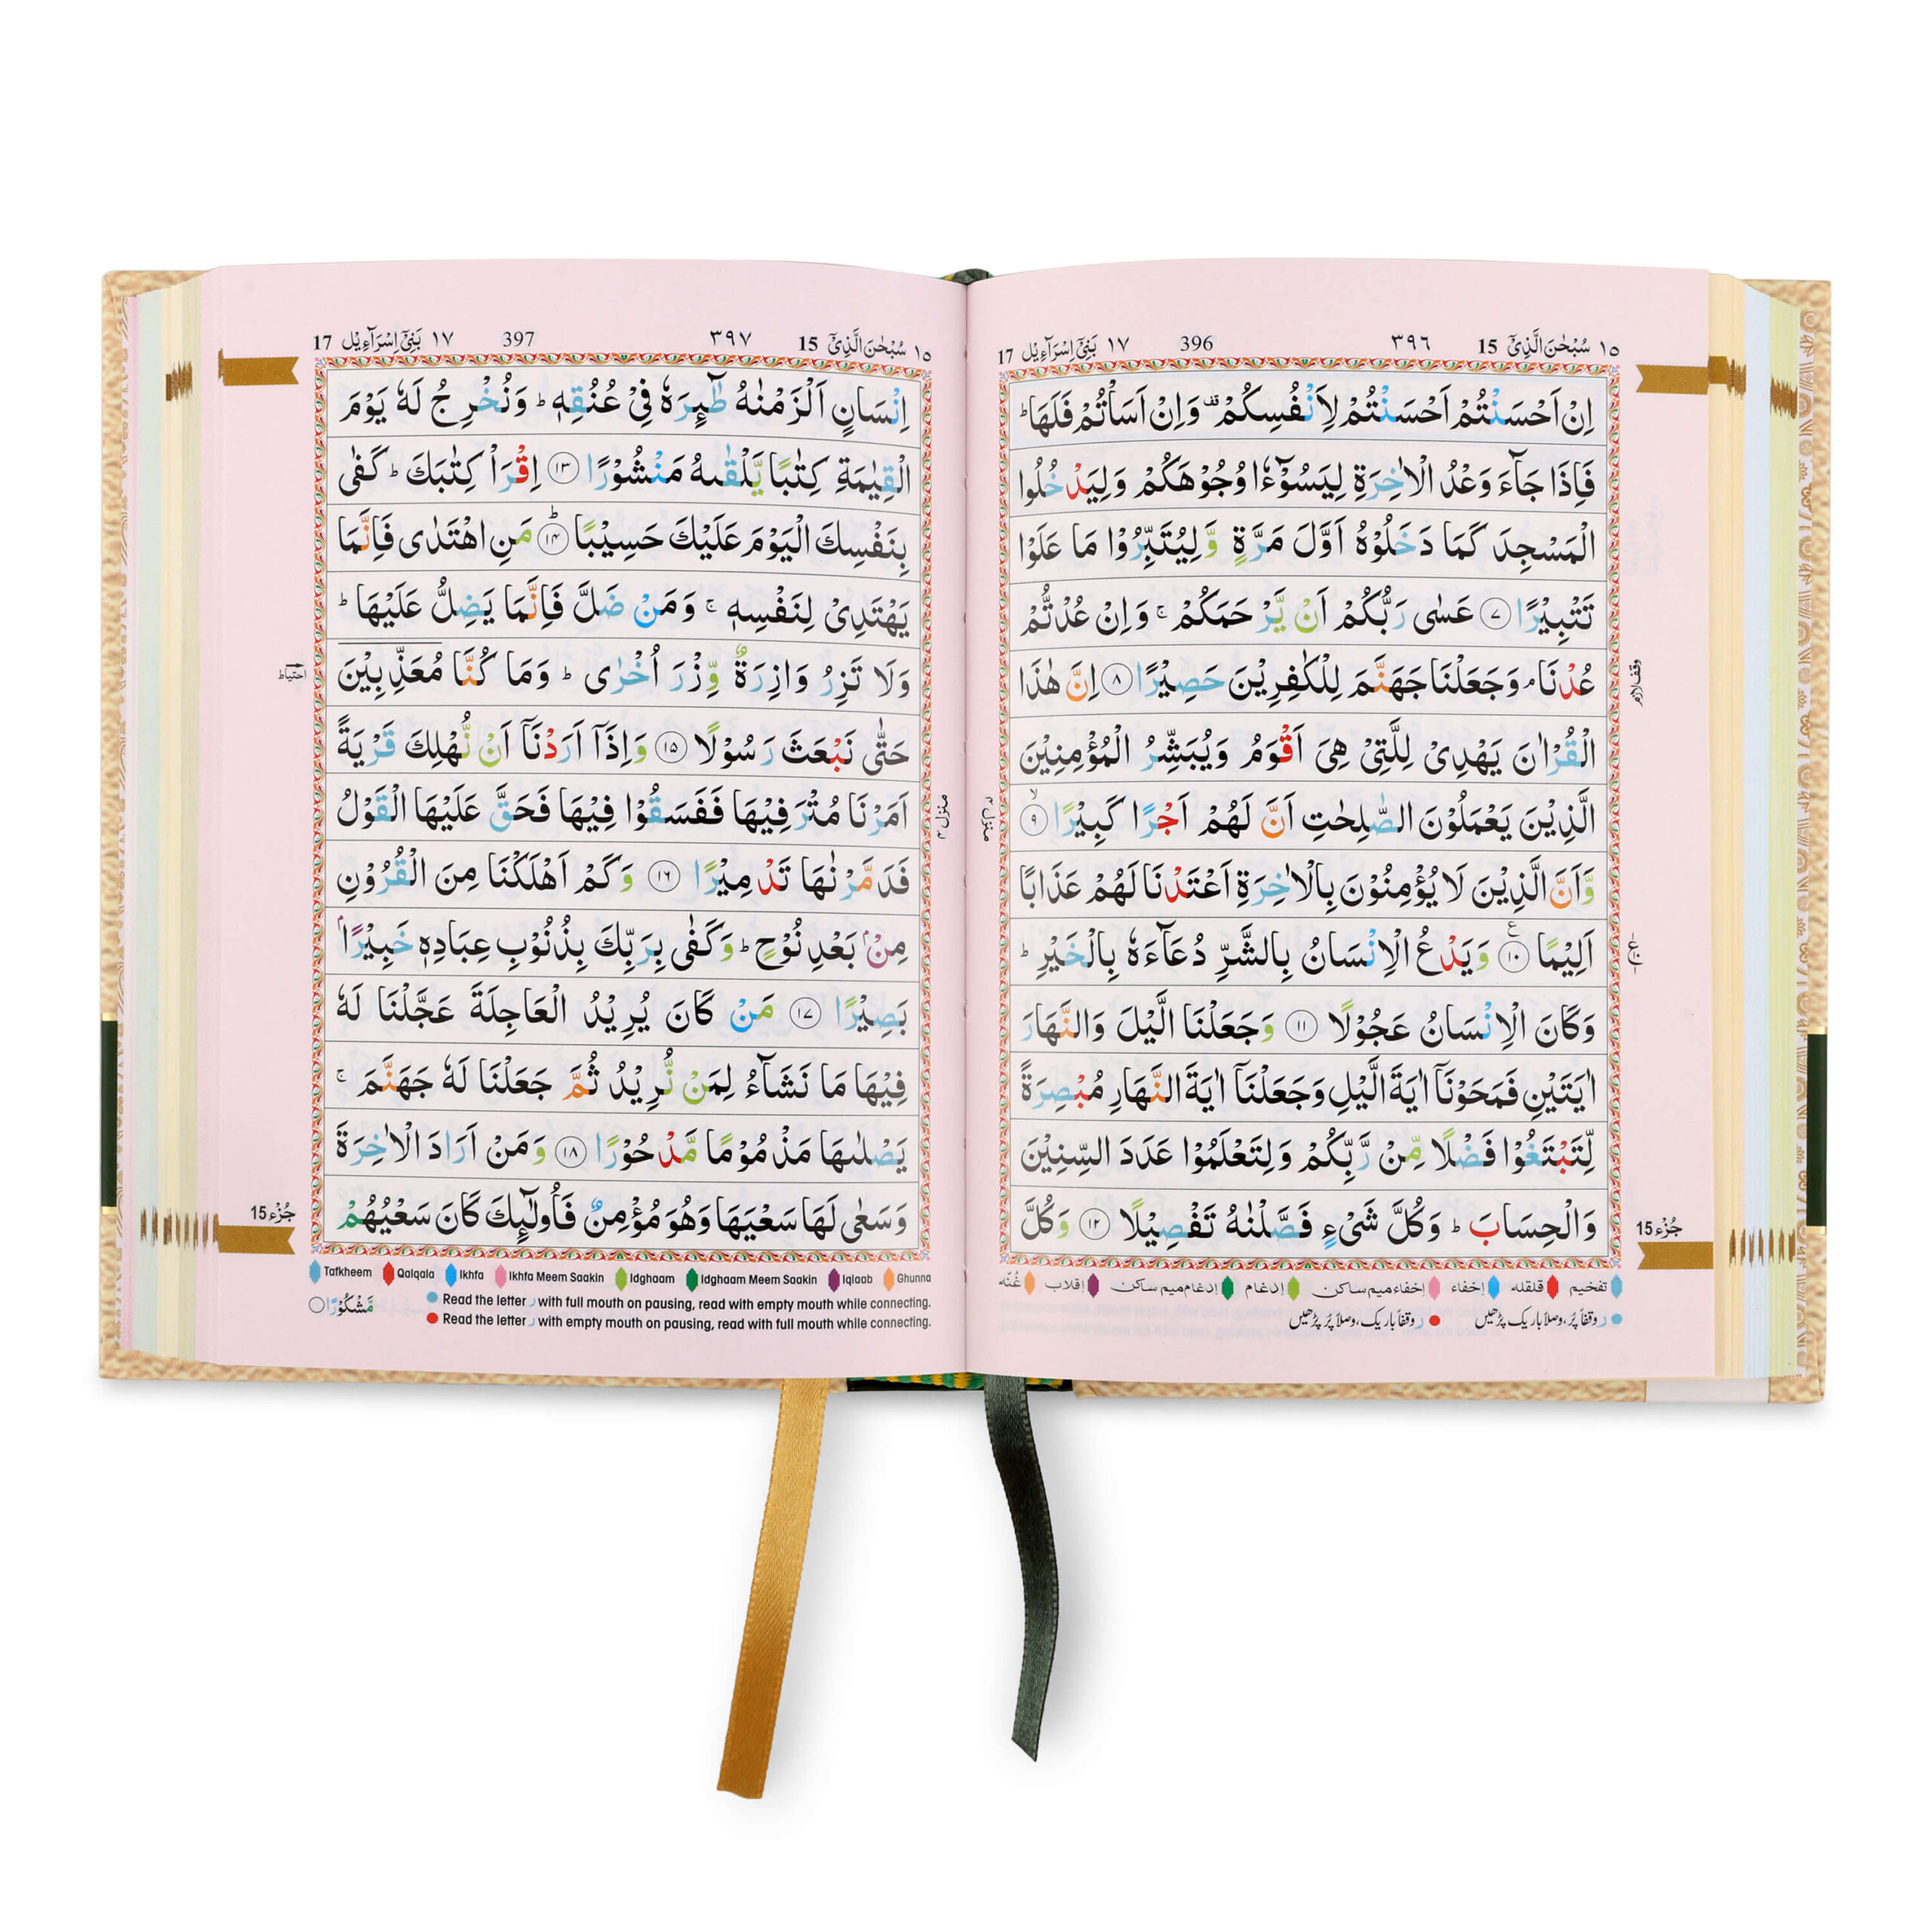 ١٥ سُبْحٰنَ الَّذِیْۤ 15 ٣٩٦ 396 ١٧ بَنِیْۤ اِسْرَآءِیْل 17
اِنْ اَحْسَنْتُمْ اَحْسَنْتُمْ لِاَنْفُسِكُمْ ۫ وَاِنْ اَسَاْتُمْ فَلَهَا ؕ
فَاِذَا جَآءَ وَعْدُ الْاٰخِرَةِ لِیَسُوْٓءٗا وُجُوْهَكُمْ وَلِیَدْخُلُوا
الْمَسْجِدَ كَمَا دَخَلُوْهُ اَوَّلَ مَرَّةٍ وَّلِیُتَبِّرُوْا مَا عَلَوْا
تَتْبِیْرًا ۝۷ عَسٰی رَبُّكُمْ اَنْ یَّرْحَمَكُمْ ۚ وَاِنْ عُدْتُّمْ
عُدْنَا ۘ وَجَعَلْنَا جَهَنَّمَ لِلْكٰفِرِیْنَ حَصِیْرًا ۝۸ اِنَّ هٰذَا
وقف لازم
الْقُرْاٰنَ یَهْدِیْ لِلَّتِیْ هِیَ اَقْوَمُ وَیُبَشِّرُ الْمُؤْمِنِیْنَ
الَّذِیْنَ یَعْمَلُوْنَ الصّٰلِحٰتِ اَنَّ لَهُمْ اَجْرًا كَبِیْرًا ۝۹ۙ
منزل ٤
وَّاَنَّ الَّذِیْنَ لَا یُؤْمِنُوْنَ بِالْاٰخِرَةِ اَعْتَدْنَا لَهُمْ عَذَابًا
اَلِیْمًا ۝۱۰ وَیَدْعُ الْاِنْسَانُ بِالشَّرِّ دُعَآءَهٗ بِالْخَیْرِ ؕ
وَكَانَ الْاِنْسَانُ عَجُوْلًا ۝۱۱ وَجَعَلْنَا الَّیْلَ وَالنَّهَارَ
اٰیَتَیْنِ فَمَحَوْنَاۤ اٰیَةَ الَّیْلِ وَجَعَلْنَاۤ اٰیَةَ النَّهَارِ مُبْصِرَةً
لِّتَبْتَغُوْا فَضْلًا مِّنْ رَّبِّكُمْ وَلِتَعْلَمُوْا عَدَدَ السِّنِیْنَ
وَالْحِسَابَ ؕ وَكُلَّ شَیْءٍ فَصَّلْنٰهُ تَفْصِیْلًا ۝۱۲ وَكُلَّ
جُزْء 15
تفخیم قلقله إخفاء إخفاء میم ساکن إدغام إدغام میم ساکن إقلاب غُنّه
ر وقفاً پُر، وصلاً باریک پڑھیں ر وقفاً باریک، وصلاً پُر پڑھیں
١٥ سُبْحٰنَ الَّذِیْۤ 15 ٣٩٧ 397 ١٧ بَنِیْۤ اِسْرَآءِیْل 17
اِنْسَانٍ اَلْزَمْنٰهُ طٰٓئِرَهٗ فِیْ عُنُقِهٖ ؕ وَنُخْرِجُ لَهٗ یَوْمَ
الْقِیٰمَةِ كِتٰبًا یَّلْقٰىهُ مَنْشُوْرًا ۝۱۳ اِقْرَاْ كِتٰبَكَ ؕ كَفٰی
بِنَفْسِكَ الْیَوْمَ عَلَیْكَ حَسِیْبًا ۝۱۴ؕ مَنِ اهْتَدٰی فَاِنَّمَا
یَهْتَدِیْ لِنَفْسِهٖ ۚ وَمَنْ ضَلَّ فَاِنَّمَا یَضِلُّ عَلَیْهَا ؕ
وَلَا تَزِرُ وَازِرَةٌ وِّزْرَ اُخْرٰی ؕ وَمَا كُنَّا مُعَذِّبِیْنَ
احتیاط
حَتّٰی نَبْعَثَ رَسُوْلًا ۝۱۵ وَاِذَاۤ اَرَدْنَاۤ اَنْ نُّهْلِكَ قَرْیَةً
اَمَرْنَا مُتْرَفِیْهَا فَفَسَقُوْا فِیْهَا فَحَقَّ عَلَیْهَا الْقَوْلُ
منزل ٤
فَدَمَّرْنٰهَا تَدْمِیْرًا ۝۱۶ وَكَمْ اَهْلَكْنَا مِنَ الْقُرُوْنِ
مِنْۢ بَعْدِ نُوْحٍ ؕ وَكَفٰی بِرَبِّكَ بِذُنُوْبِ عِبَادِهٖ خَبِیْرًۢا
بَصِیْرًا ۝۱۷ مَنْ كَانَ یُرِیْدُ الْعَاجِلَةَ عَجَّلْنَا لَهٗ
فِیْهَا مَا نَشَآءُ لِمَنْ نُّرِیْدُ ثُمَّ جَعَلْنَا لَهٗ جَهَنَّمَ ۚ
یَصْلٰىهَا مَذْمُوْمًا مَّدْحُوْرًا ۝۱۸ وَمَنْ اَرَادَ الْاٰخِرَةَ
وَسَعٰی لَهَا سَعْیَهَا وَهُوَ مُؤْمِنٌ فَاُولٰٓئِكَ كَانَ سَعْیُهُمْ
جُزْء 15
Tafkheem Qalqala Ikhfa Ikhfa Meem Saakin Idghaam Idghaam Meem Saakin Iqlaab Ghunna
Read the letter ر with full mouth on pausing, read with empty mouth while connecting.
Read the letter ر with empty mouth on pausing, read with full mouth while connecting.
مَّشْكُوْرًا ○